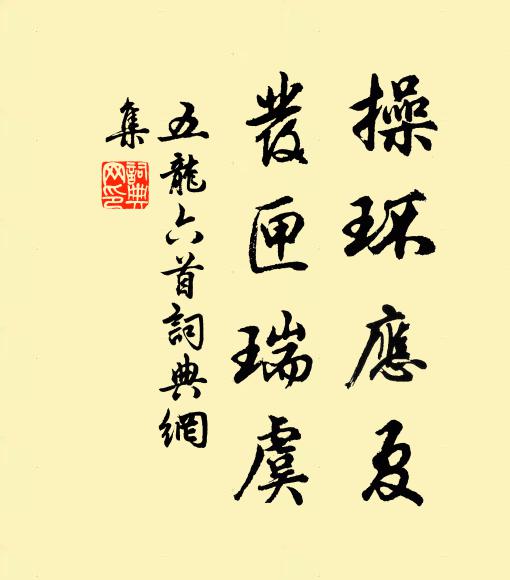 操環應夏
發匣瑞虞
五龍六首詞典網
集
詞典
网印